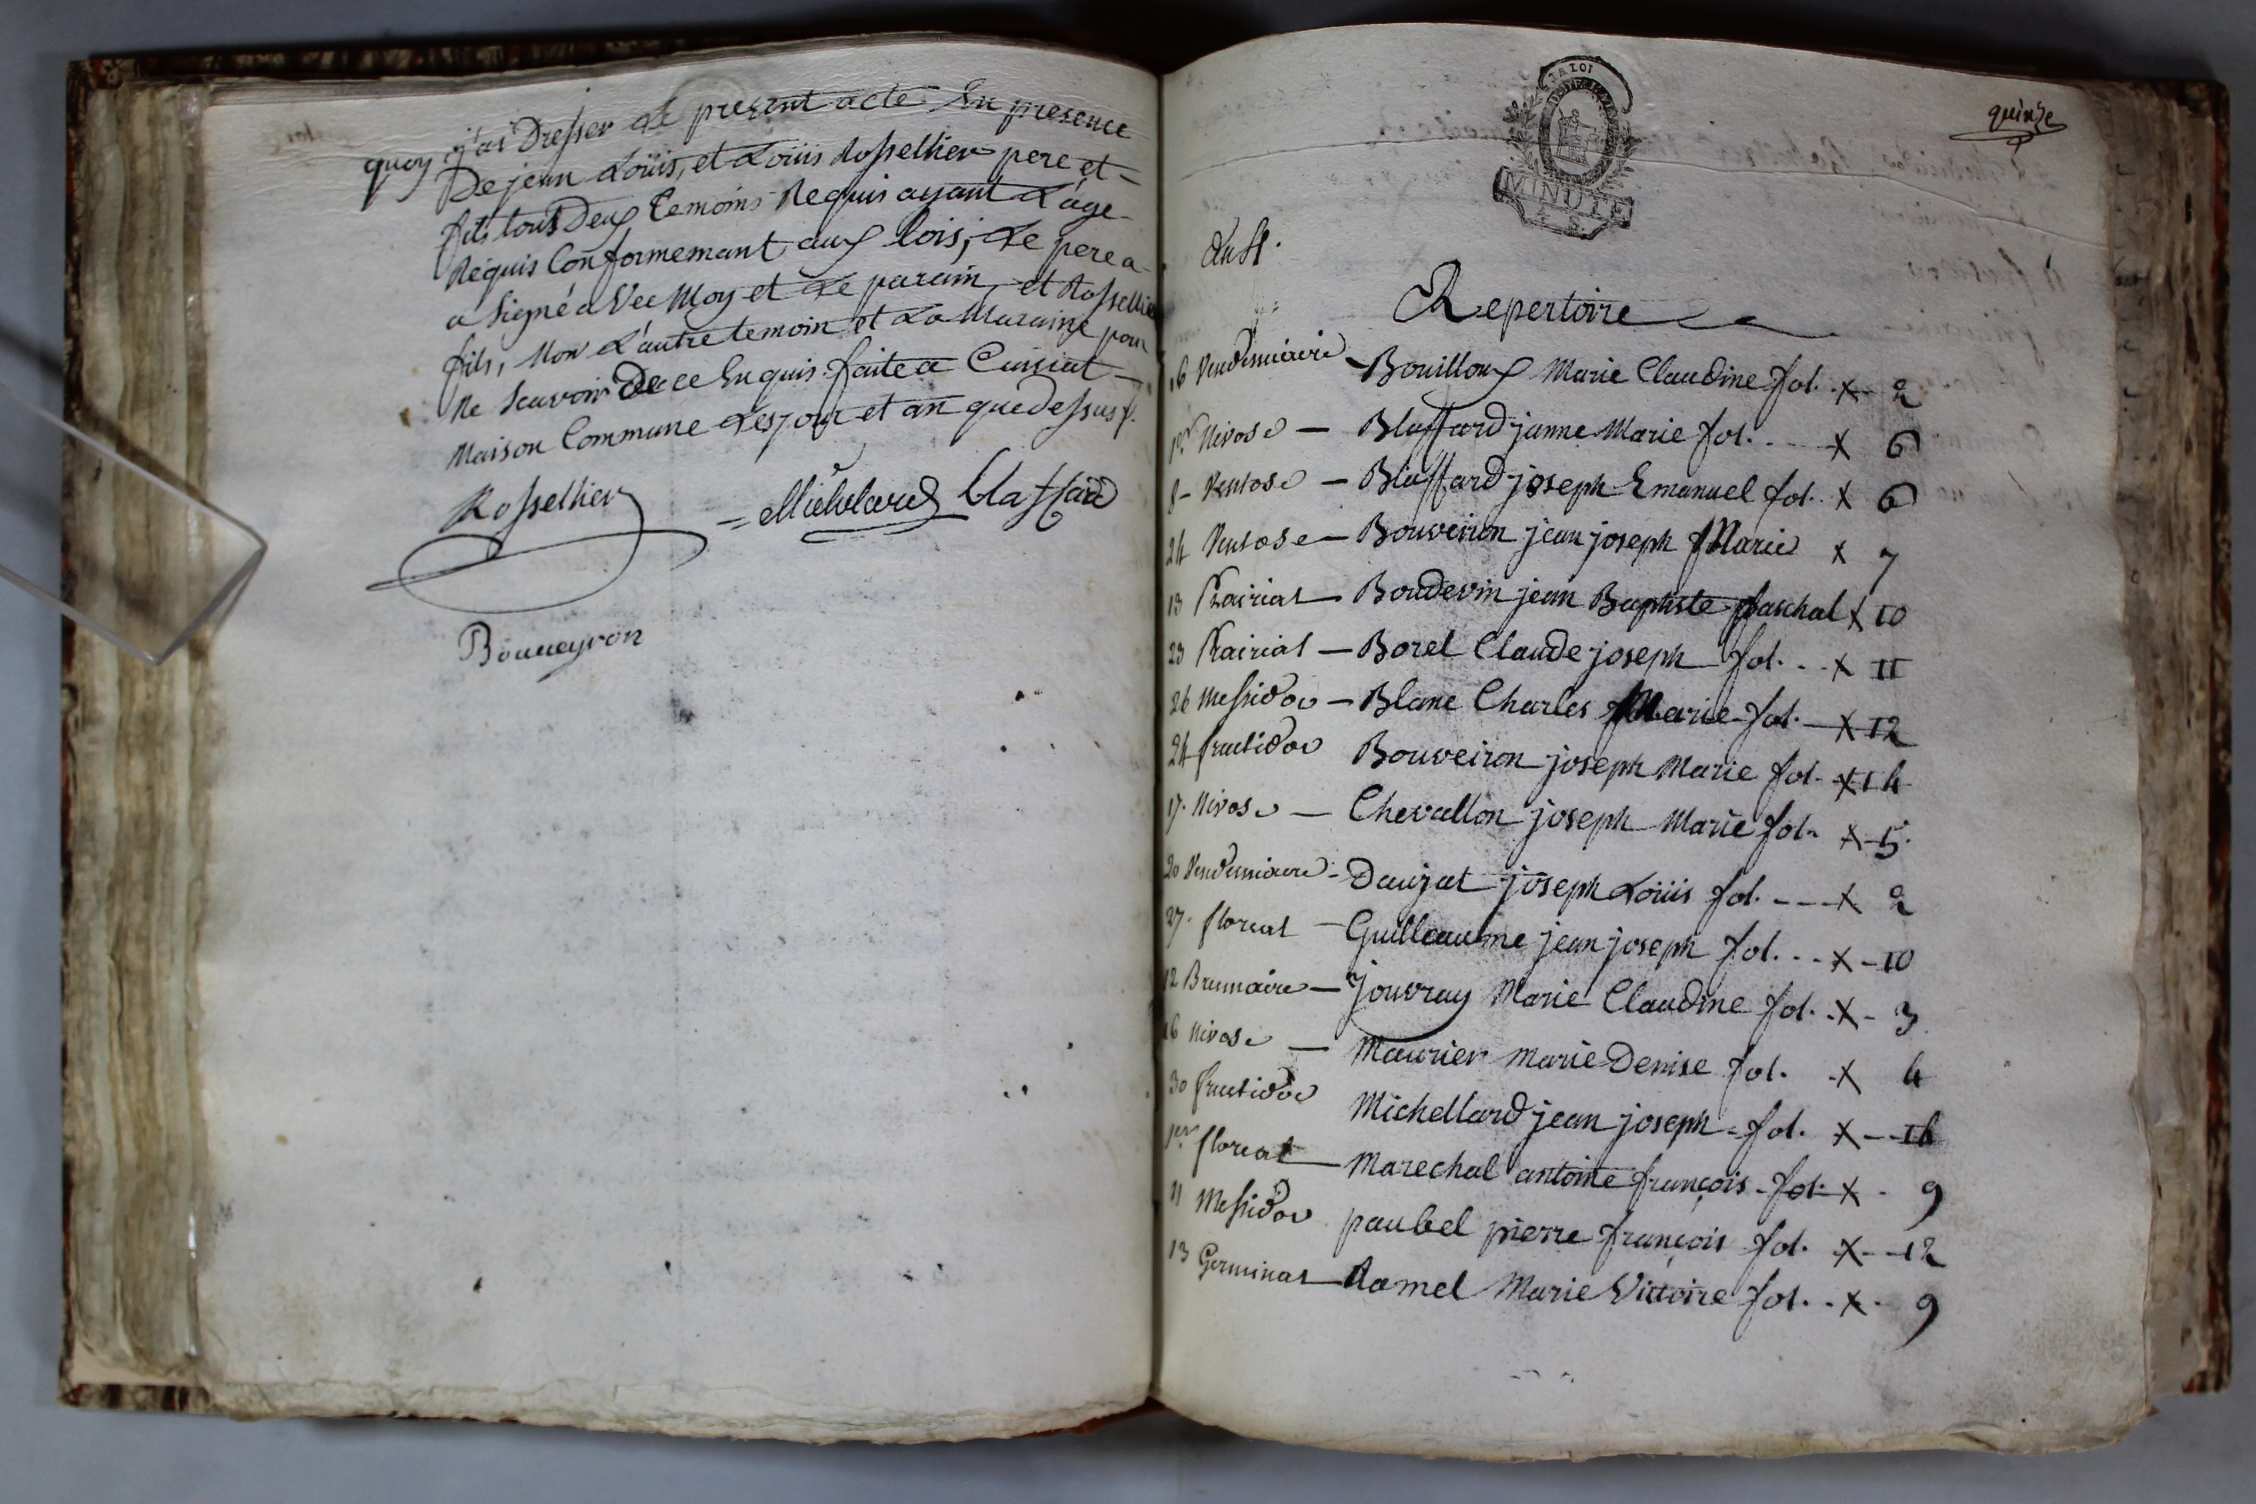 quoy j'ai Dresser Le present acte En presence
De jean Loüis, et Loüis Rossellier pere et
fils tous Deux temoins Requis ayant L'age
Requis Conformemant aux lois, Le pere a
a Signé aVec Moy et Le parain, et Rossellier
fils, Non L'autre temoin et La Maraine pour
Ne Scavoir De ce Enquis faite a Cuisiat
Maison Commune Les jour et an que dessus
Rossellier Michelard blaffard
Bouueyron
quinze
LA LOI
MINUTE
Repertoire
16 Vendemiaire Bouilloux Marie Claudine fol. X 2
1er Nivose Blaffard janne Marie fol. X 6
8 Ventose Blaffard joseph Emanuel fol. X 6
24 Ventose Bouveiron jean joseph Marie X 7
13 Prairial Boudevin jean Baptiste paschal X 10
23 Prairial Borel Claude joseph fol. X 11
26 Messidor Blanc Charles Marie fol. X 12
24 fructidor Bouveiron joseph Marie fol. X 14
17 Nivose Chevallon joseph Marie fol. X 5
20 Vendemiaire Daujat joseph Loüis fol. X 2
27 floreal Guilleaume jean joseph fol. X 10
12 Brumaire jouvray Marie Claudine fol. X 3
16 Nivose Maurier Marie Denise fol. X 4
30 fructidor Michellard jean joseph fol. X 14
1er floreal Marechal antoine françois fol. X 9
11 Messidor paubel pierre françois fol. X 12
13 Germinal Ramel Marie Victoire fol. X 9